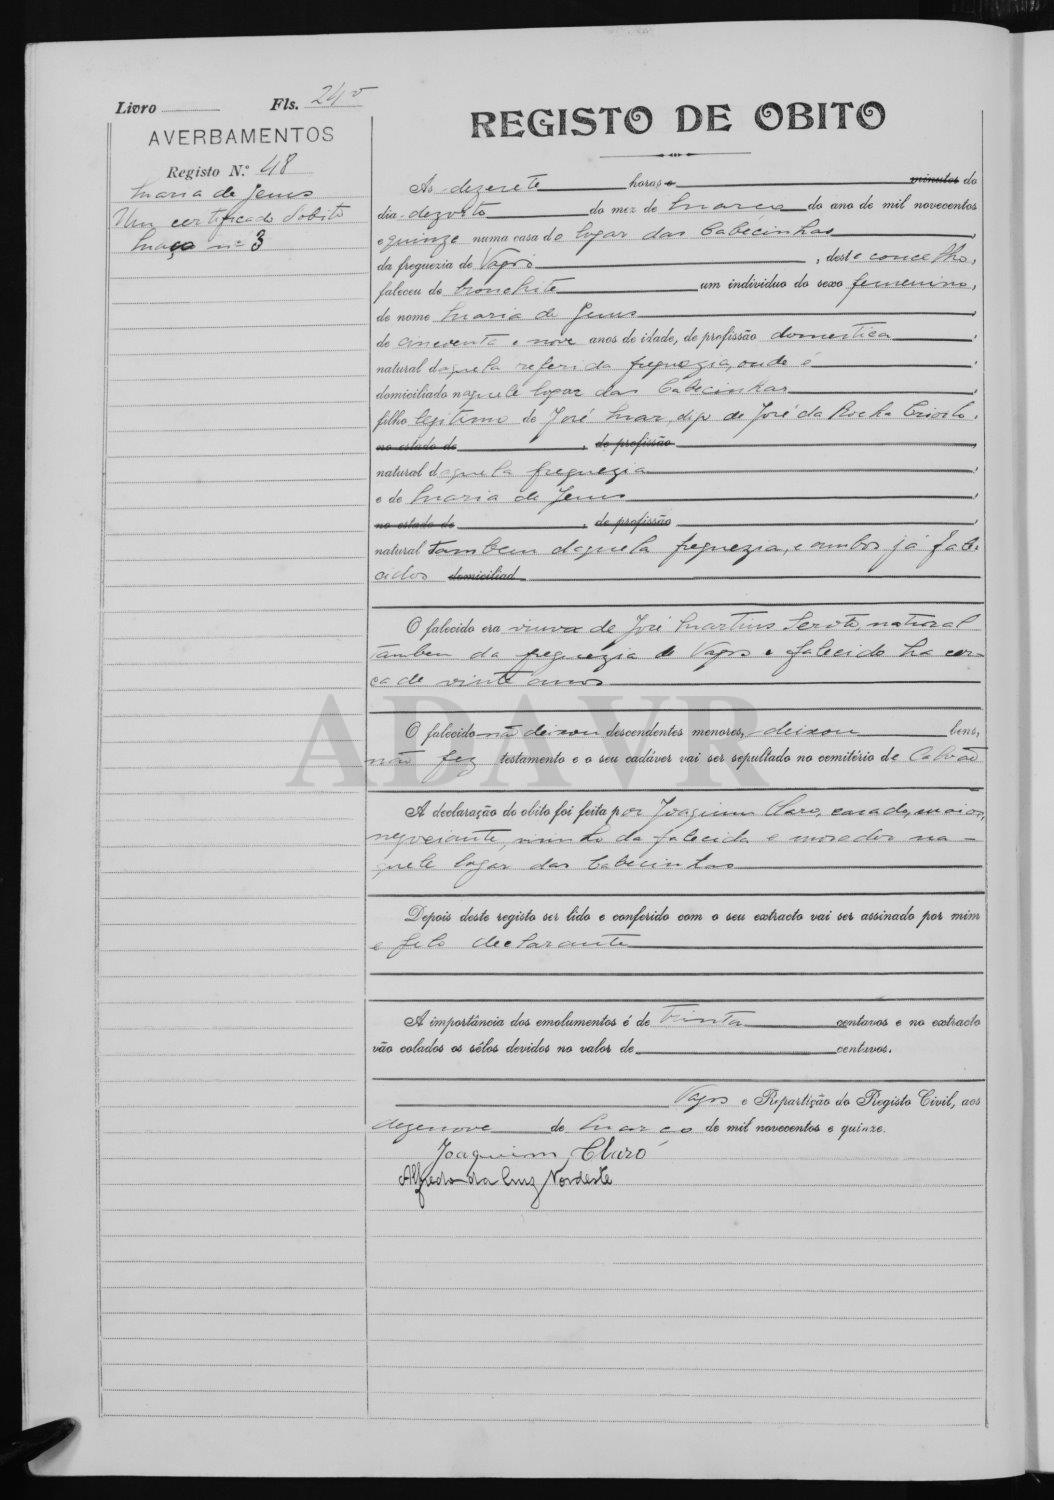 Livro Fls. 24 v
AVERBAMENTOS
Registo N.º 48
Maria de Jesus
Um certificado d'obito
Maço nº 3
REGISTO DE OBITO
Ás dezesete horas e minutos do
dia dezoito do mez de Março do ano de mil novecentos
e quinze numa casa do logar das Cabecinhas,
da freguezia de Vagos, deste concelho,
faleceu de bronchite um individuo do sexo femenino,
de nome Maria de Jesus,
de cincoenta e nove anos de idade, de profissão domestica,
natural daquela referida freguezia, onde é
domiciliado naquele logar das Cabecinhas,
filho legitimo de José da Rocha
no estado de, de profissão,
natural daquela freguezia,
e de Maria de Jesus,
no estado de, de profissão,
natural tambem daquela freguezia, e ambos já fale-
cidos domiciliad
O falecido era viuva de José Martins natural
tambem da freguezia de Vagos e falecido ha cer-
ca de vinte anos
O falecido não deixou descendentes menores, deixou bens,
não fez testamento e o seu cadáver vai ser sepultado no cemitério de Calvão
A declaração do obito foi feita por Joaquim Claro, casado, maior,
negociante, visinho da falecida e morador na-
quele logar das Cabecinhas
Depois deste registo ser lido e conferido com o seu extracto vai ser assinado por mim
e pelo declarante
A importância dos emolumentos é de trinta centavos e no extracto
vão colados os sêlos devidos no valor de centavos.
Vagos e Repartição do Registo Civil, aos
dezenove de Março de mil novecentos e quinze.
Joaquim Claro
Alfredo da Cruz Nordeste
ADAVR